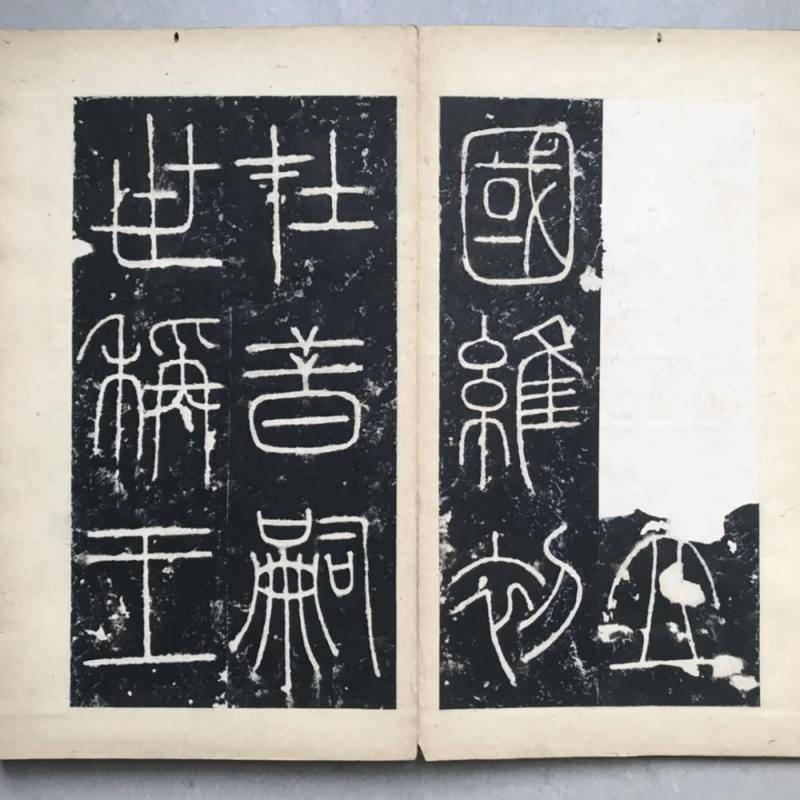 立
國維初
在昔嗣
世稱王